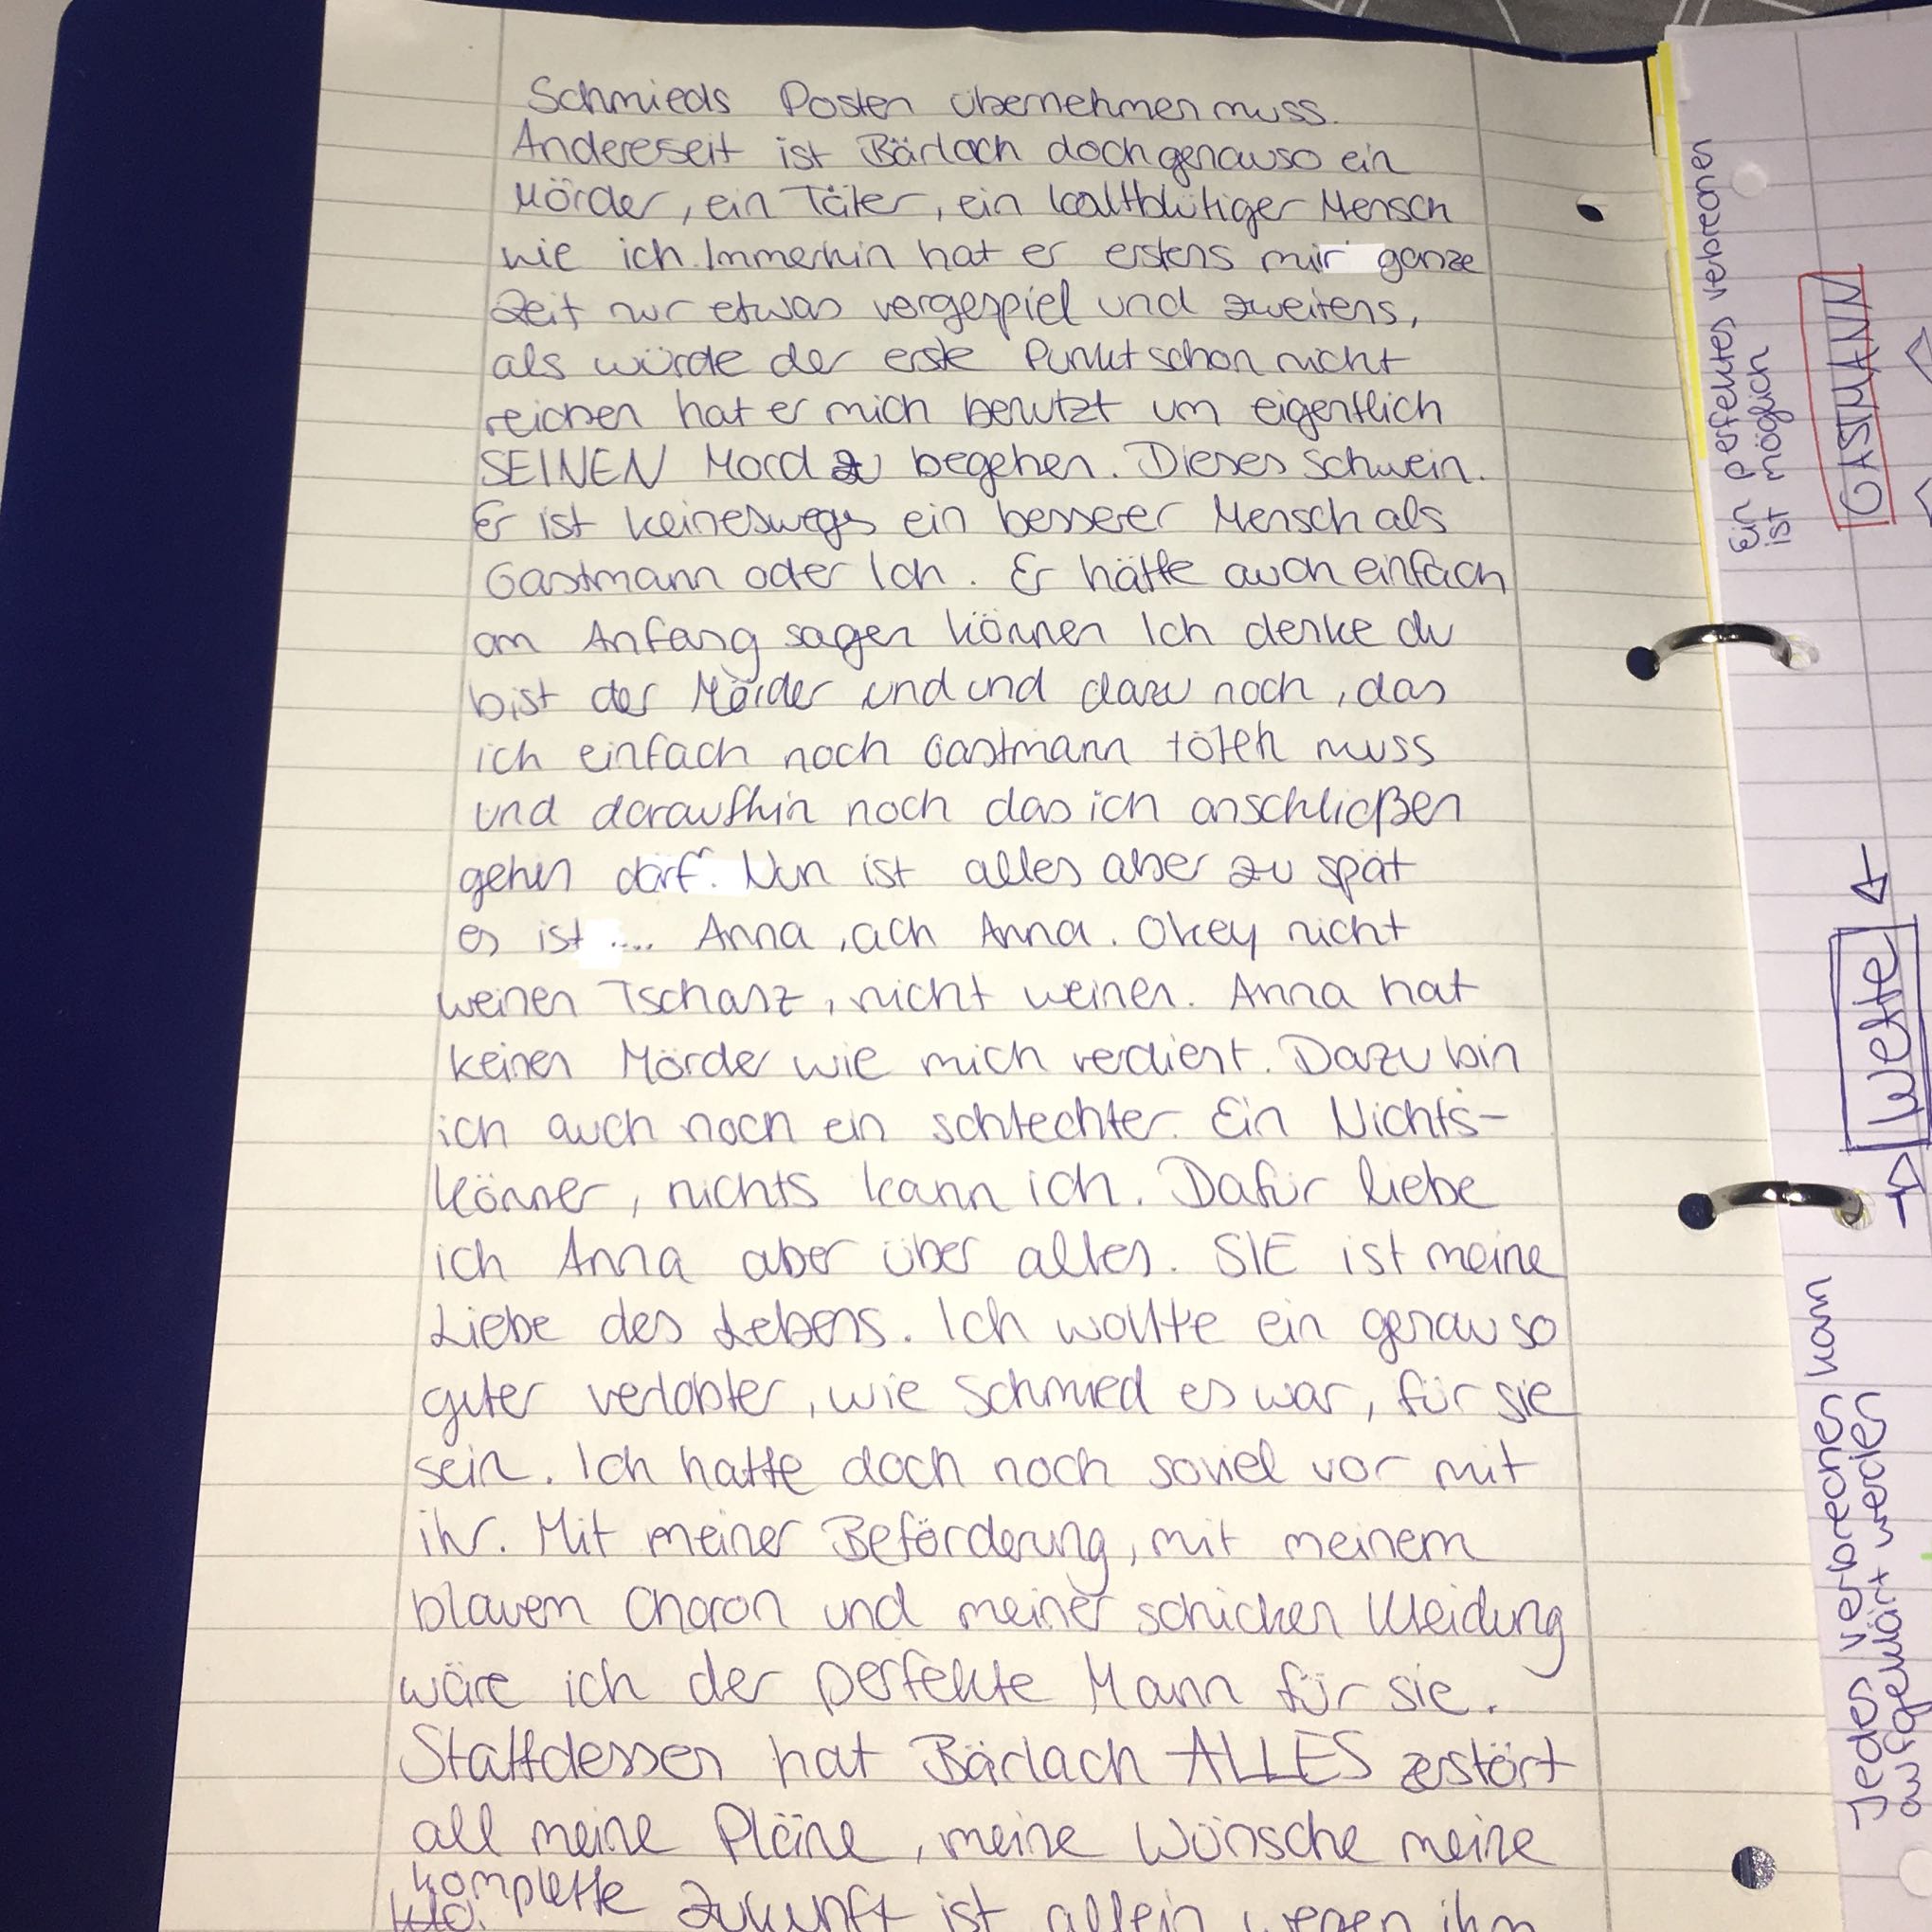 Schmieds Posten übernehmen muss.
Andereseit ist Bärlach doch genauso ein
Mörder, ein Täter, ein kaltblütiger Mensch
wie ich. Immerhin hat er erstens mir ganze
Zeit nur etwas vorgespiel und zweitens,
als würde der erste Punkt schon nicht
reichen hat er mich benutzt um eigentlich
SEINEN Mord zu begehen. Dieses Schwein.
Er ist keineswegs ein besserer Mensch als
Gastmann oder Ich. Er hätte auch einfach
am Anfang sagen können Ich denke du
bist der Mörder und und dazu noch, das
ich einfach noch Gastmann töten muss
und daraufhin noch das ich anschließen
gehen darf. Nun ist alles aber zu spät
es ist .... Anna, ach Anna. Okey nicht
weinen Tschanz, nicht weinen. Anna hat
keinen Mörder wie mich verdient. Dazu bin
ich auch noch ein schlechter. Ein Nichts-
könner, nichts kann ich. Dafür liebe
ich Anna aber über alles. SIE ist meine
Liebe des Lebens. Ich wollte ein genau so
guter verlobter, wie Schmied es war, für sie
sein. Ich hatte doch noch soviel vor mit
ihr. Mit meiner Beförderung, mit meinem
blauen Charon und meiner schicken Kleidung
wäre ich der perfekte Mann für sie.
Stattdessen hat Bärlach ALLES zerstört
all meine Pläne, meine Wünsche meine
komplette Zukunft ist allein wegen ihm
Ein perfektes verbrechen
ist möglich
GASTMANN
Wette
Jedes verbrechen kann
aufgeklärt werden